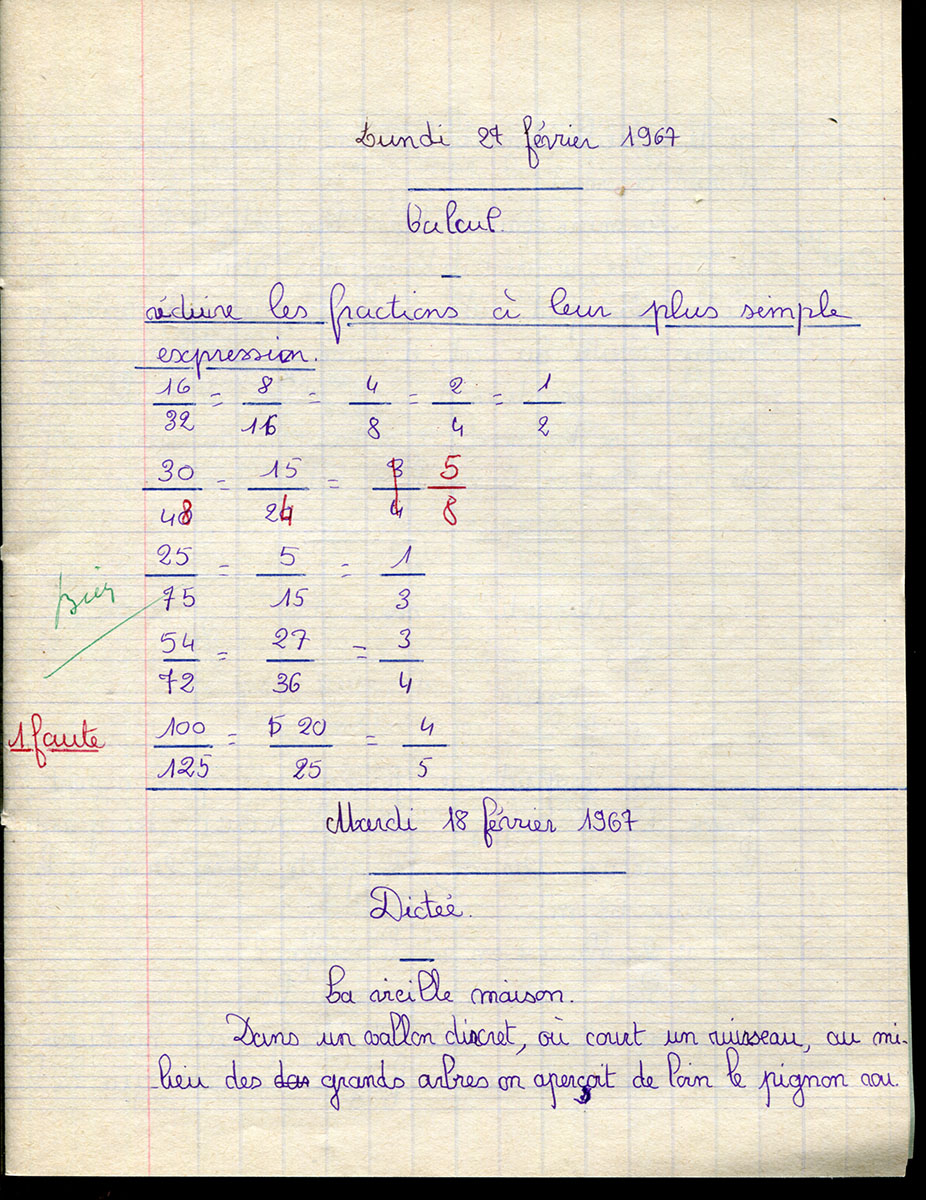 Lundi 27 février 1967
Calcul.
réduire les fractions à leur plus simple
expression.
16/32 = 8/16 = 4/8 = 2/4 = 1/2
30/48 = 15/24 = 3/4 5/8
25/75 = 5/15 = 1/3
bien
54/72 = 27/36 = 3/4
1 faute
100/125 = 5 20/25 = 4/5
Mardi 18 février 1967
Dictée.
La vieille maison.
Dans un vallon discret, où court un ruisseau, au mi-
lieu des des grands arbres on aperçoit de loin le pignon rou.